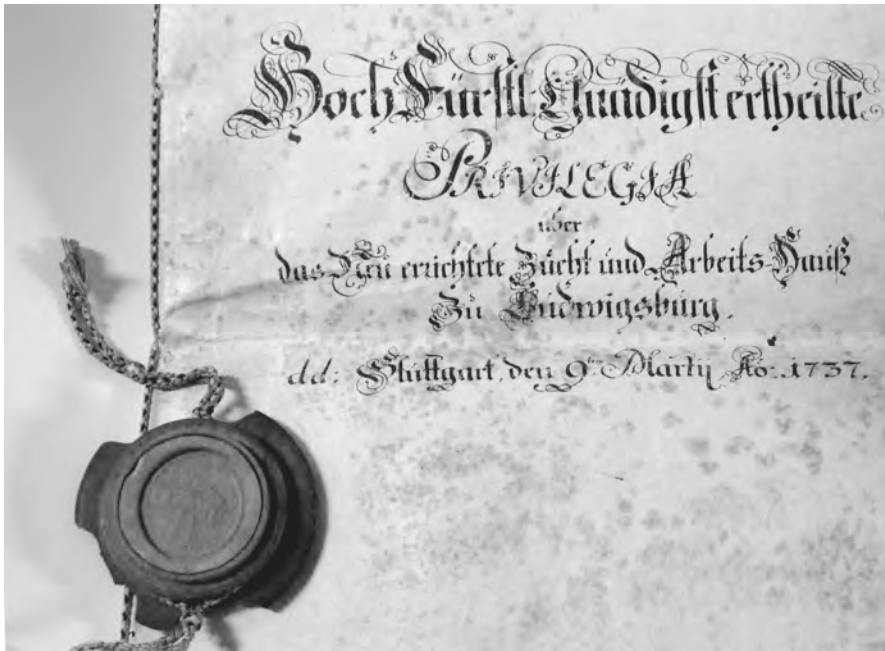 Hoch Fürstl. Gnädigst ertheilte
PRIVILEGIA
über
das Neu errichtete Zücht und Arbeits-Hauß
Zu Ludwigsburg.
dd: Stuttgart, den 9ten Martij Ao: 1737.